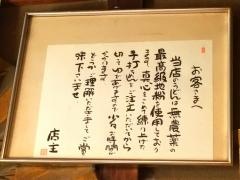 お客さまへ
当店のうどんは無農薬の
最高級地粉を使用しており
ます、真心をこめ練り上げた
手打めんをご注文いただいてから
切ってゆであげますので少々お時間が
かかります
どうかご理解いただきましてご賞
味下さいませ
店主